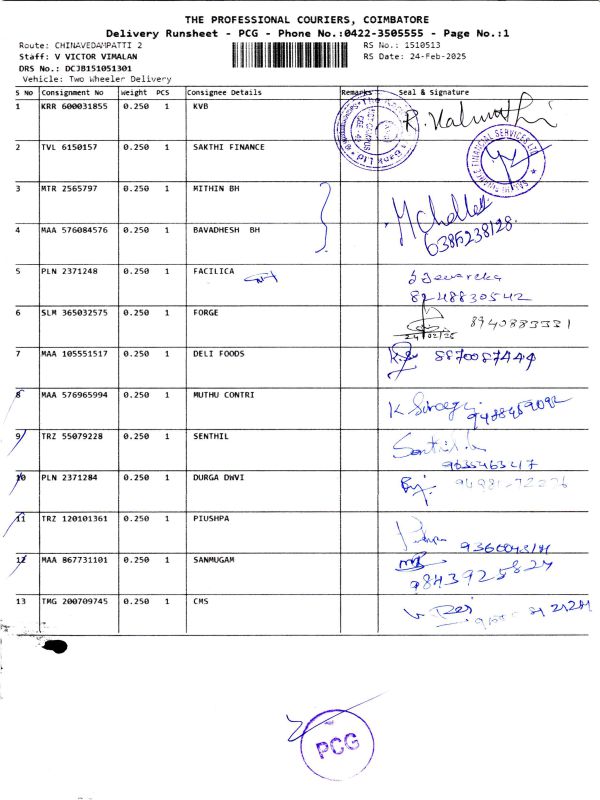 THE PROFESSIONAL COURIERS, COIMBATORE
Delivery Runsheet - PCG - Phone No.:0422-3505555 - Page No.:1
Route: CHINAVEDAMPATTI 2 RS No.: 1510513
Staff: V VICTOR VIMALAN RS Date: 24-Feb-2025
DRS No.: DCJB151051301
Vehicle: Two Wheeler Delivery
S No Consignment No Weight PCS Consignee Details Remarks Seal & signature
1 KRR 600031855 0.250 1 KVB
2 TVL 6150157 0.250 1 SAKTHI FINANCE
3 MTR 2565797 0.250 1 MITHIN BH
4 MAA 576084576 0.250 1 BAVADHESH BH
6385238128
5 PLN 2371248 0.250 1 FACILICA
8248830542
6 SLM 365032575 0.250 1 FORGE 8940883331
24/02/25
7 MAA 105551517 0.250 1 DELI FOODS 8870087444
8 MAA 576965994 0.250 1 MUTHU CONTRI
9 TRZ 55079228 0.250 1 SENTHIL
10 PLN 2371284 0.250 1 DURGA DWVI
11 TRZ 120101361 0.250 1 PIUSHPA
12 MAA 867731101 0.250 1 SANMUGAM
9843925824
13 TMG 200709745 0.250 1 CMS
PCG